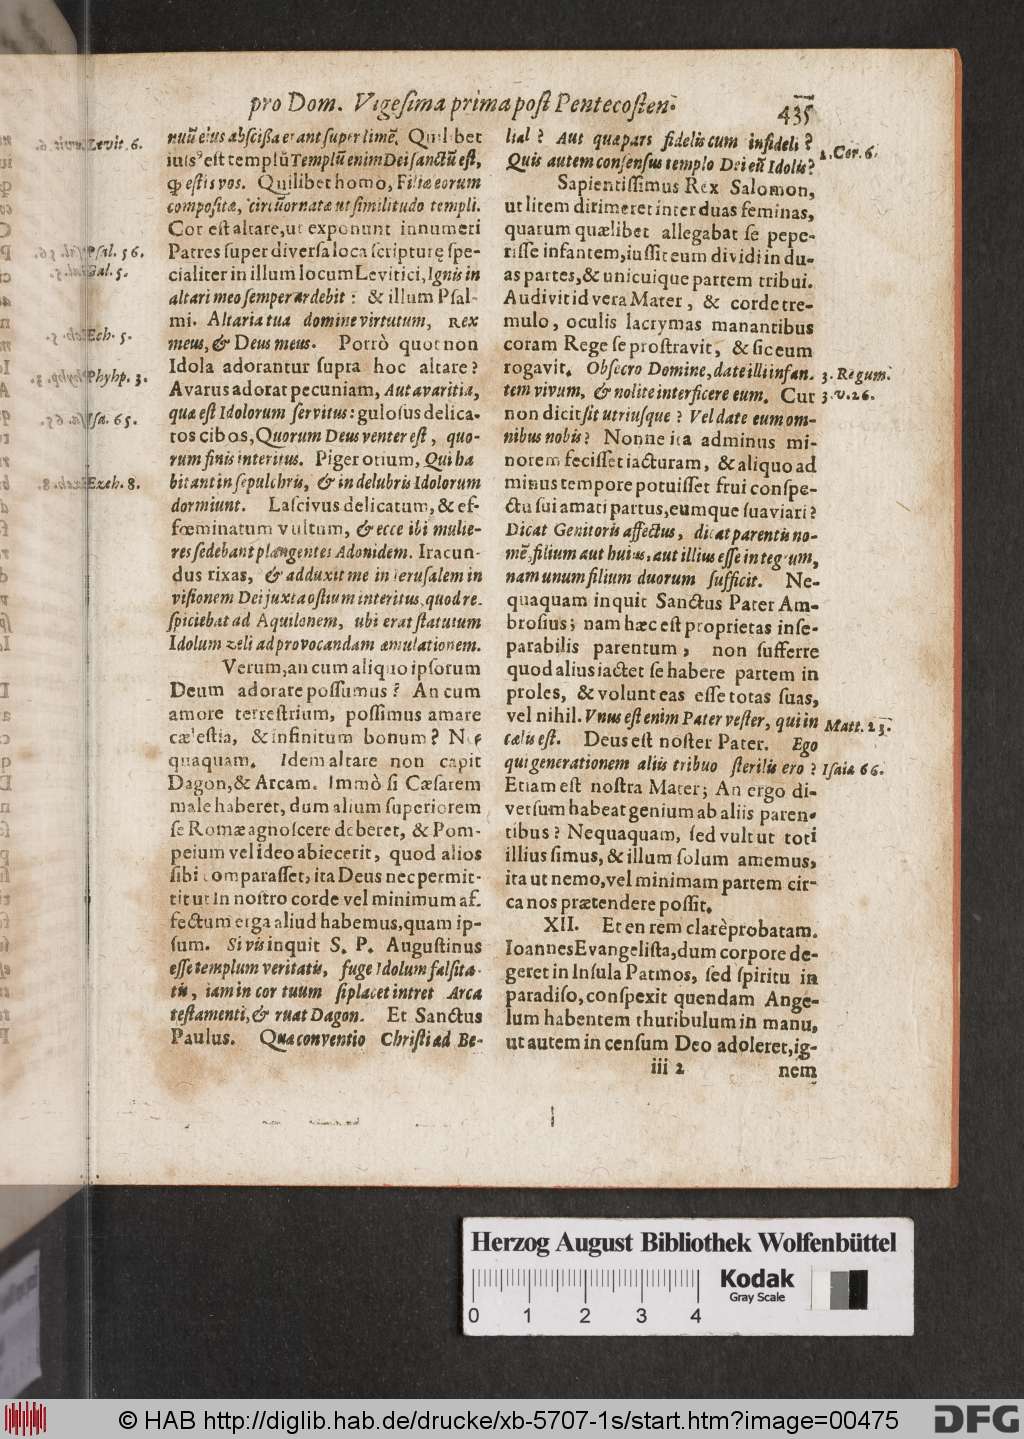 pro Dom. Vigeſima prima poſt Pentecoſten.
435
nuũ eius abſciſſa erant ſuper limẽ. Quilibet
iuſsꝰ eſt templũ Templũ enim Dei ſanctũ eſt,
eſtis vos. Quilibet homo, Filiæ eorum
compoſitæ, circũornatæ ut ſimilitudo templi.
Cor eſt altare, ut exponunt innumeri
Patres ſuper diverſa loca ſcripturę ſpe-
cialiter in illum locum Levitici, Ignis in
altari meo ſemper ardebit: & illum Pſal-
mi. Altaria tua domine virtutum, REX
meus, & Deus meus. Porrò quot non
Idola adorantur ſupra hoc altare?
Avarus adorat pecuniam, Aut avaritia,
quæ eſt Idolorum ſervitus: guloſus delica-
tos cibos, Quorum Deus venter eſt, quo-
rum finis interitus. Piger otium, Qui ha
bitant in ſepulchris, & in delubris Idolorum
dormiunt. Laſcivus delicatum, & ef-
fœminatum vultum, & ecce ibi mulie-
res ſedebant plangentes Adonidem. Iracun-
dus rixas, & adduxit me in ieruſalem in
viſionem Dei juxta oſtium interitus, quod re-
ſpiciebat ad Aquilonem, ubi erat ſtatutum
Idolum zeli ad provocandam æmulationem.
Verum, an cum aliquo ipſorum
Deum adorare poſſumus? An cum
amore terreſtrium, poſſimus amare
cæleſtia, & infinitum bonum? Ne
quaquam. Idem altare non capit
Dagon, & Arcam. Immò ſi Cæſarem
male haberet, dum alium ſuperiorem
ſe Romæ agnoſcere deberet, & Pom-
peium vel ideo abiecerit, quod alios
ſibi comparaſſet, ita Deus nec permit-
tit ut in noſtro corde vel minimum af-
fectum erga aliud habemus, quam ip-
ſum. Si vis inquit S. P. Auguſtinus
eſſe templum veritatis, fuge Idolum falſita-
tis, iam in cor tuum ſi placet intret Arca
teſtamenti, & ruat Dagon. Et Sanctus
Paulus. Quæ conventio Chriſti ad Be-
Levit. 6.
Pſal. 56.
Gal. 5.
Ech. 5.
Phyhp. 3.
Iſa. 65.
Ezeh. 8.
lial? Aut quæ pars fidelis cum infideli?
Quis autem conſenſus templo Dei cũ Idolis?
Sapientiſſimus Rex Salomon,
ut litem dirimeret inter duas feminas,
quarum quælibet allegabat ſe pepe-
riſſe infantem, iuſſit eum dividi in du-
as partes, & unicuique partem tribui.
Audivit id vera Mater, & corde tre-
mulo, oculis lacrymas manantibus
coram Rege ſe proſtravit, & ſic eum
rogavit. Obſecro Domine, date illi infan-
tem vivum, & nolite interficere eum. Cur
non dicit ſit utriuſque? Vel date eum om-
nibus nobis? Nonne ita adminus mi-
norem feciſſet iacturam, & aliquo ad
minus tempore potuiſſet frui conſpe-
ctu ſui amati partus, eumque ſuaviari?
Dicat Genitoris affectus, dicat parentis no-
mẽ, filium aut huius, aut illius eſſe integrum,
nam unum filium duorum ſufficit. Ne-
quaquam inquit Sanctus Pater Am-
broſius; nam hæc eſt proprietas inſe-
parabilis parentum, non ſufferre
quod alius iactet ſe habere partem in
proles, & volunt eas eſſe totas ſuas,
vel nihil. Vnus eſt enim Pater veſter, qui in
cælis eſt. Deus eſt noſter Pater. Ego
qui generationem aliis tribuo ſterilis ero?
Etiam eſt noſtra Mater; An ergo di-
verſum habeat genium ab aliis paren-
tibus? Nequaquam, ſed vult ut toti
illius ſimus, & illum ſolum amemus,
ita ut nemo, vel minimam partem cir-
ca nos prætendere poſſit.
XII. Et en rem clarè probatam.
Ioannes Evangeliſta, dum corpore de-
geret in Inſula Patmos, ſed ſpiritu in
paradiſo, conſpexit quendam Ange-
lum habentem thuribulum in manu,
ut autem in cenſum Deo adoleret, ig-
iii 2
nem
2. Cor. 6.
3. Regum.
3. v. 26.
Matt. 23.
Iſaia 66.
Herzog August Bibliothek Wolfenbüttel
Kodak
Gray Scale
0 1 2 3 4
© HAB http://diglib.hab.de/drucke/xb-5707-1s/start.htm?image=00475
DFG